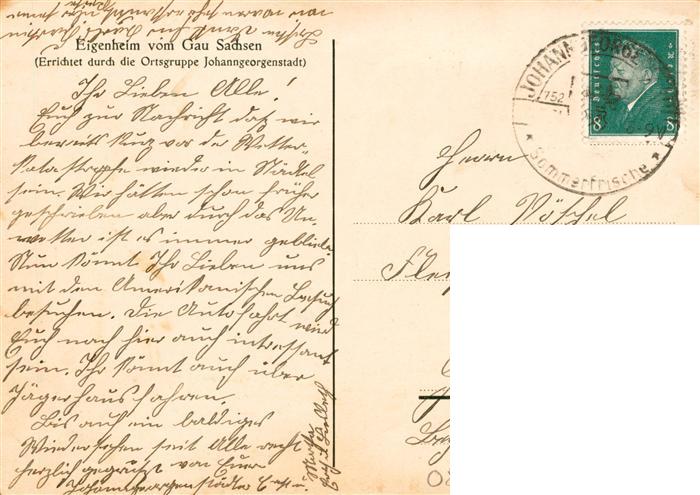 Eigenheim vom Gau Sachsen
(Errichtet durch die Ortsgruppe Johanngeorgenstadt)
Ihr Lieben Alle!
Euch zur Nachricht daß wir
bereits kurz vor der Wetter-
katastrophe wieder in Städtel
sein. Wir hätten schon früher
geschrieben aber durch das Un-
wetter ist es immer geblieb.
Nun könnt Ihr Lieben uns
mit dem Amerikanischen Besuch
besuchen. Die Autofahrt wird
Euch nach hier auch intressant
sein. Ihr könnt auch über
Jägerhaus fahren.
Bis auf ein baldiges
Wiedersehen seit Alle recht
herzlich gegrüßt von Euer
Johanngeorgenstädter
Martha
JOHANNGEORGE
752
* Sommerfrische *
Deutsches
8 8
Herrn
Karl Pöschel